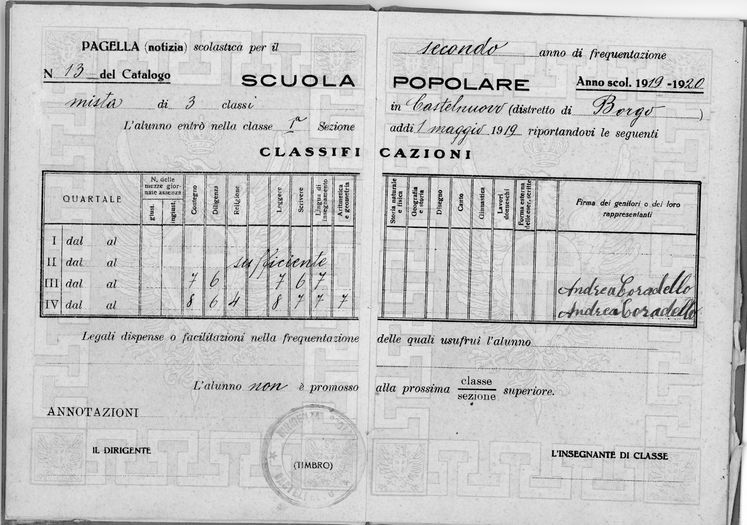 PAGELLA (notizia) scolastica per il secondo anno di frequentazione
N 13 del Catalogo SCUOLA POPOLARE Anno scol. 1919-1920
mista di 3 classi in Castelnuovo (distretto di Borgo)
L'alunno entrò nella classe 1ª Sezione addi 1 maggio 1919 riportandovi le seguenti
CLASSIFICAZIONI
QUARTALE
N. delle mezze giornate assenza
giust.
ingiust.
Contegno
Diligenza
Religione
Leggere
Scrivere
Lingua di insegnamento
Aritmetica e geometria
Storia naturale e fisica
Geografia e storia
Disegno
Canto
Ginnastica
Lavori donneschi
Forma esterna delle eser. scritte
Firma dei genitori o dei loro rappresentanti
I dal al
II dal al sufficiente
III dal al 7 6 7 6 7 Andrea Coradello
IV dal al 8 6 4 8 7 7 7 Andrea Coradello
Legali dispense o facilitazioni nella frequentazione delle quali usufruì l'alunno
L'alunno non è promosso alla prossima classe/sezione superiore.
ANNOTAZIONI
IL DIRIGENTE
(TIMBRO)
L'INSEGNANTE DI CLASSE